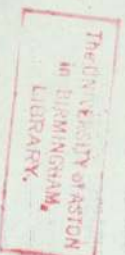 The UNIVERSITY of ASTON
in BIRMINGHAM.
LIBRARY.